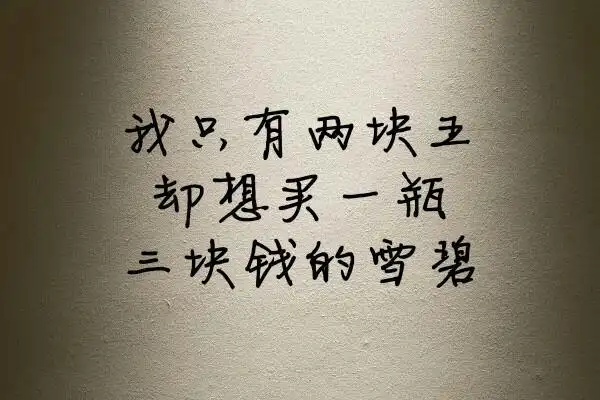 我只有两块五
却想买一瓶
三块钱的雪碧